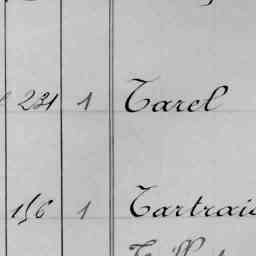 231 1 Tarel
156 1 Tartrais